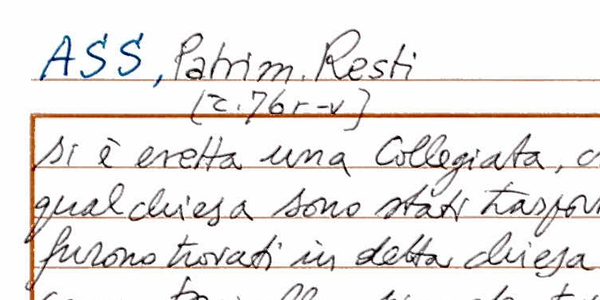 ASS, Patrim. Resti
[c. 76r-v]
si è eretta una Collegiata,
qual chiesa sono stati
furono trovati in detta chiesa